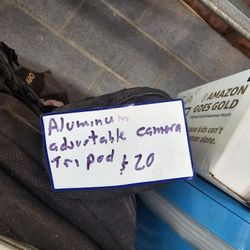 Aluminum
adjustable camera
Tripod $20
AMAZON
GOES GOLD
kids can't
alone.